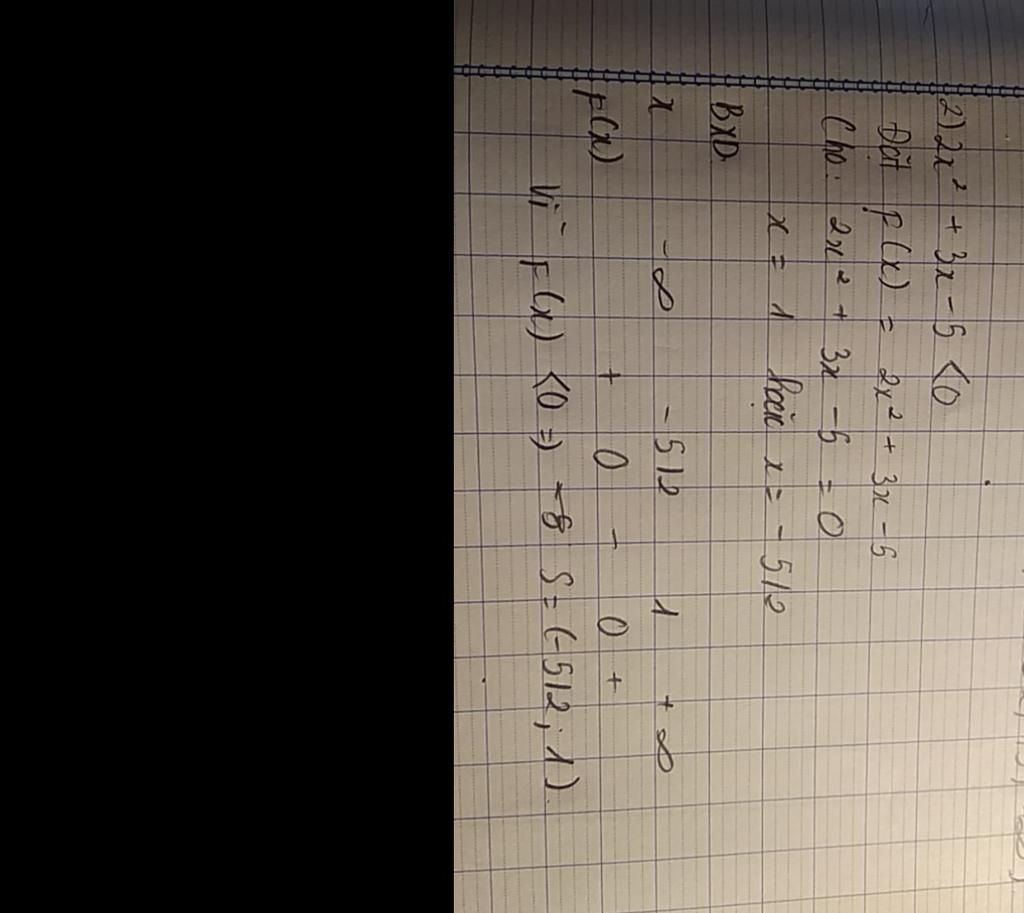 2) 2x² + 3x - 5 < 0
Đặt f(x) = 2x² + 3x - 5
Cho: 2x² + 3x - 5 = 0
x = 1 hoặc x = -5/2
BXD
x -∞ -5/2 1 +∞
f(x) + 0 - 0 +
Vì f(x) < 0 => S = (-5/2; 1)